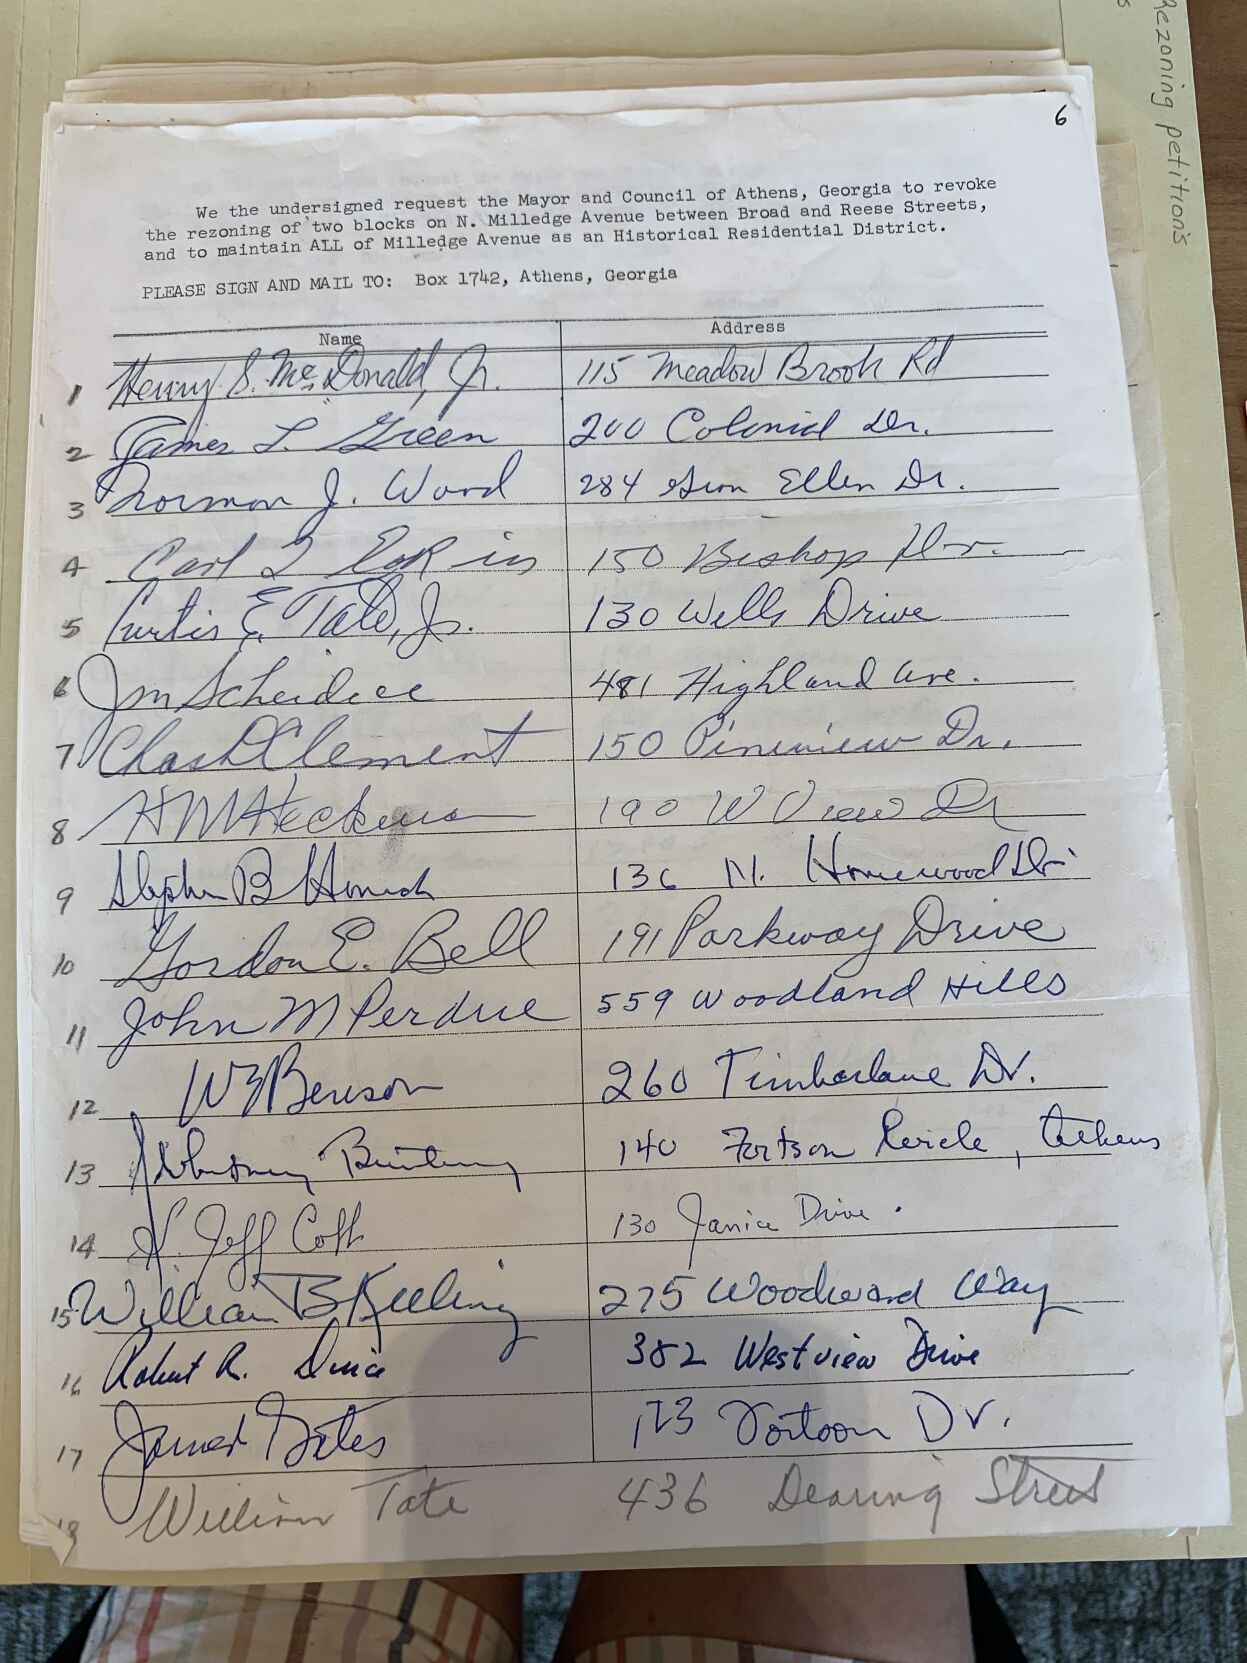 Rezoning petitions
6
We the undersigned request the Mayor and Council of Athens, Georgia to revoke
the rezoning of two blocks on N. Milledge Avenue between Broad and Reese Streets,
and to maintain ALL of Milledge Avenue as an Historical Residential District.
PLEASE SIGN AND MAIL TO: Box 1742, Athens, Georgia
Name Address
1 Henry S. McDonald, Jr. 115 Meadow Brook Rd
2 James L. Green 200 Colonial Dr.
3 Norman J. Wood 284 Ellen Dr.
4 Carl 150 Bishop Dr.
5 Curtis E. Tate, Jr. 130 Wells Drive
6 481 Highland Ave.
7 Clement 150 Pineview Dr.
8 190 W View Dr
9 Stephen B 136 N. Homewood Dr.
10 Gordon E. Bell 191 Parkway Drive
11 John M Perdue 559 Woodland Hills
12 Benson 260 Timberlane Dr.
13 140 Fortson Circle, Athens
14 Jeff 130 Janice Drive.
15 William B Keeling 275 Woodward Way
16 Robert R. 382 Westview Drive
17 James Dr.
18 William Tate 436 Dearing Street